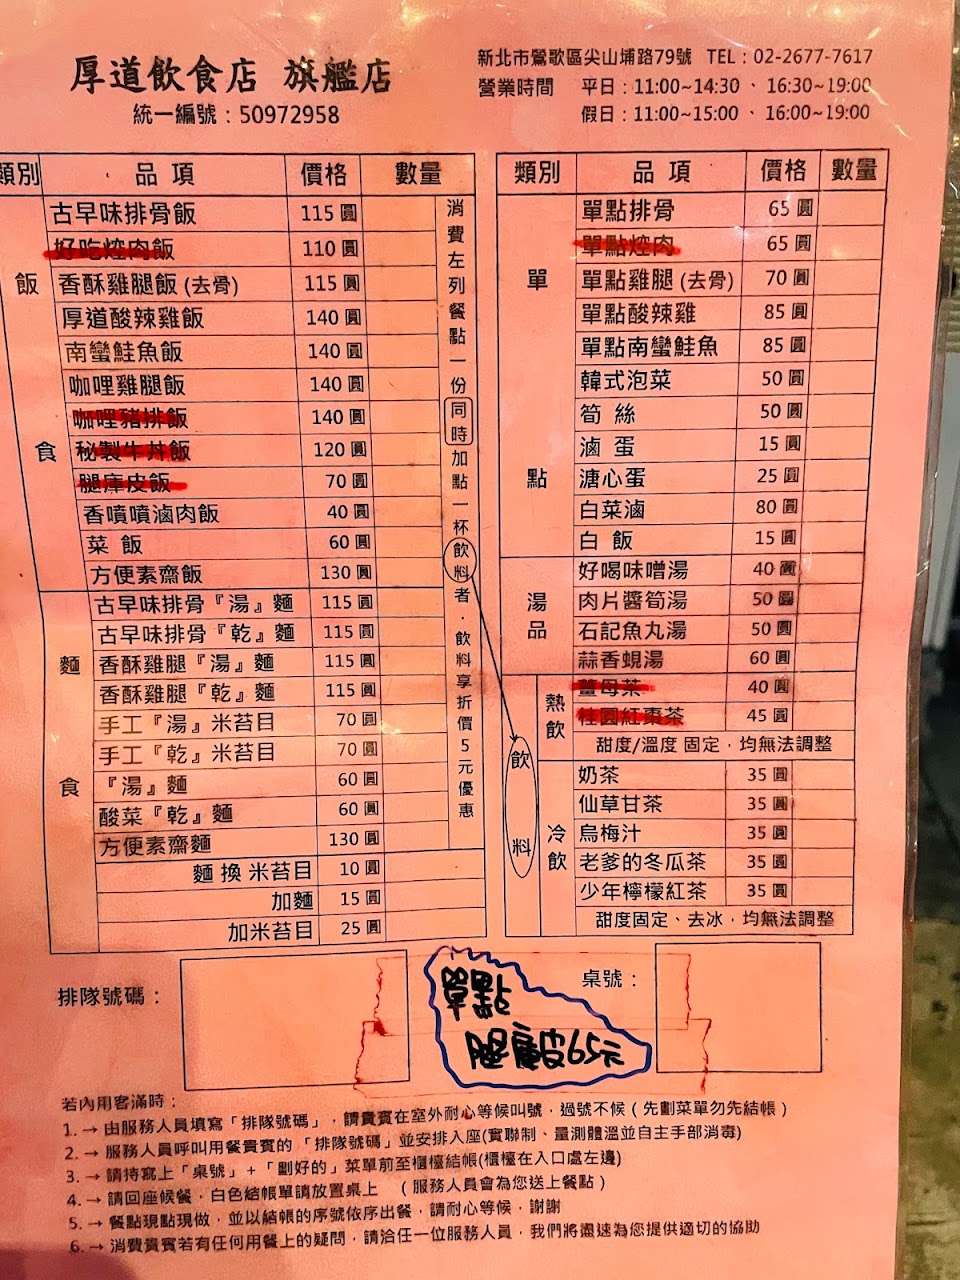 厚道飲食店 旗艦店
統一編號：50972958
新北市鶯歌區尖山埔路79號 TEL：02-2677-7617
營業時間 平日：11:00~14:30 、 16:30~19:00
假日：11:00~15:00 、 16:00~19:00
類別 品 項 價格 數量
飯食
古早味排骨飯 115 圓
好吃焢肉飯 110 圓
香酥雞腿飯 (去骨) 115 圓
厚道酸辣雞飯 140 圓
南蠻鮭魚飯 140 圓
咖哩雞腿飯 140 圓
咖哩豬排飯 140 圓
秘製牛丼飯 120 圓
腿庫皮飯 70 圓
香噴噴滷肉飯 40 圓
菜 飯 60 圓
方便素齋飯 130 圓
麵食
古早味排骨『湯』麵 115 圓
古早味排骨『乾』麵 115 圓
香酥雞腿『湯』麵 115 圓
香酥雞腿『乾』麵 115 圓
手工『湯』米苔目 70 圓
手工『乾』米苔目 70 圓
『湯』麵 60 圓
酸菜『乾』麵 60 圓
方便素齋麵 130 圓
麵 換 米苔目 10 圓
加麵 15 圓
加米苔目 25 圓
消費左列餐點一份同時加點一杯飲料者．飲料享折價5元優惠
類別 品 項 價格 數量
單點
單點排骨 65 圓
單點焢肉 65 圓
單點雞腿 (去骨) 70 圓
單點酸辣雞 85 圓
單點南蠻鮭魚 85 圓
韓式泡菜 50 圓
筍 絲 50 圓
滷 蛋 15 圓
溏心蛋 25 圓
白菜滷 80 圓
白 飯 15 圓
湯品
好喝味噌湯 40 圓
肉片醬筍湯 50 圓
石記魚丸湯 50 圓
蒜香蜆湯 60 圓
飲料
熱飲
薑母茶 40 圓
桂圓紅棗茶 45 圓
甜度/溫度 固定．均無法調整
冷飲
奶茶 35 圓
仙草甘茶 35 圓
烏梅汁 35 圓
老爹的冬瓜茶 35 圓
少年檸檬紅茶 35 圓
甜度固定、去冰．均無法調整
排隊號碼：
單點
腿庫皮65元
桌號：
若內用客滿時：
1. → 由服務人員填寫「排隊號碼」，請貴賓在室外耐心等候叫號，過號不候 ( 先劃菜單勿先結帳 )
2. → 服務人員呼叫用餐貴賓的「排隊號碼」並安排入座(實聯制、量測體溫並自主手部消毒)
3. → 請持寫上「桌號」+「劃好的」菜單前至櫃檯結帳(櫃檯在入口處左邊)
4. → 請回座候餐，白色結帳單請放置桌上 ( 服務人員會為您送上餐點 )
5. → 餐點現點現做，並以結帳的序號依序出餐，請耐心等候，謝謝
6. → 消費貴賓若有任何用餐上的疑問，請洽任一位服務人員，我們將盡速為您提供適切的協助